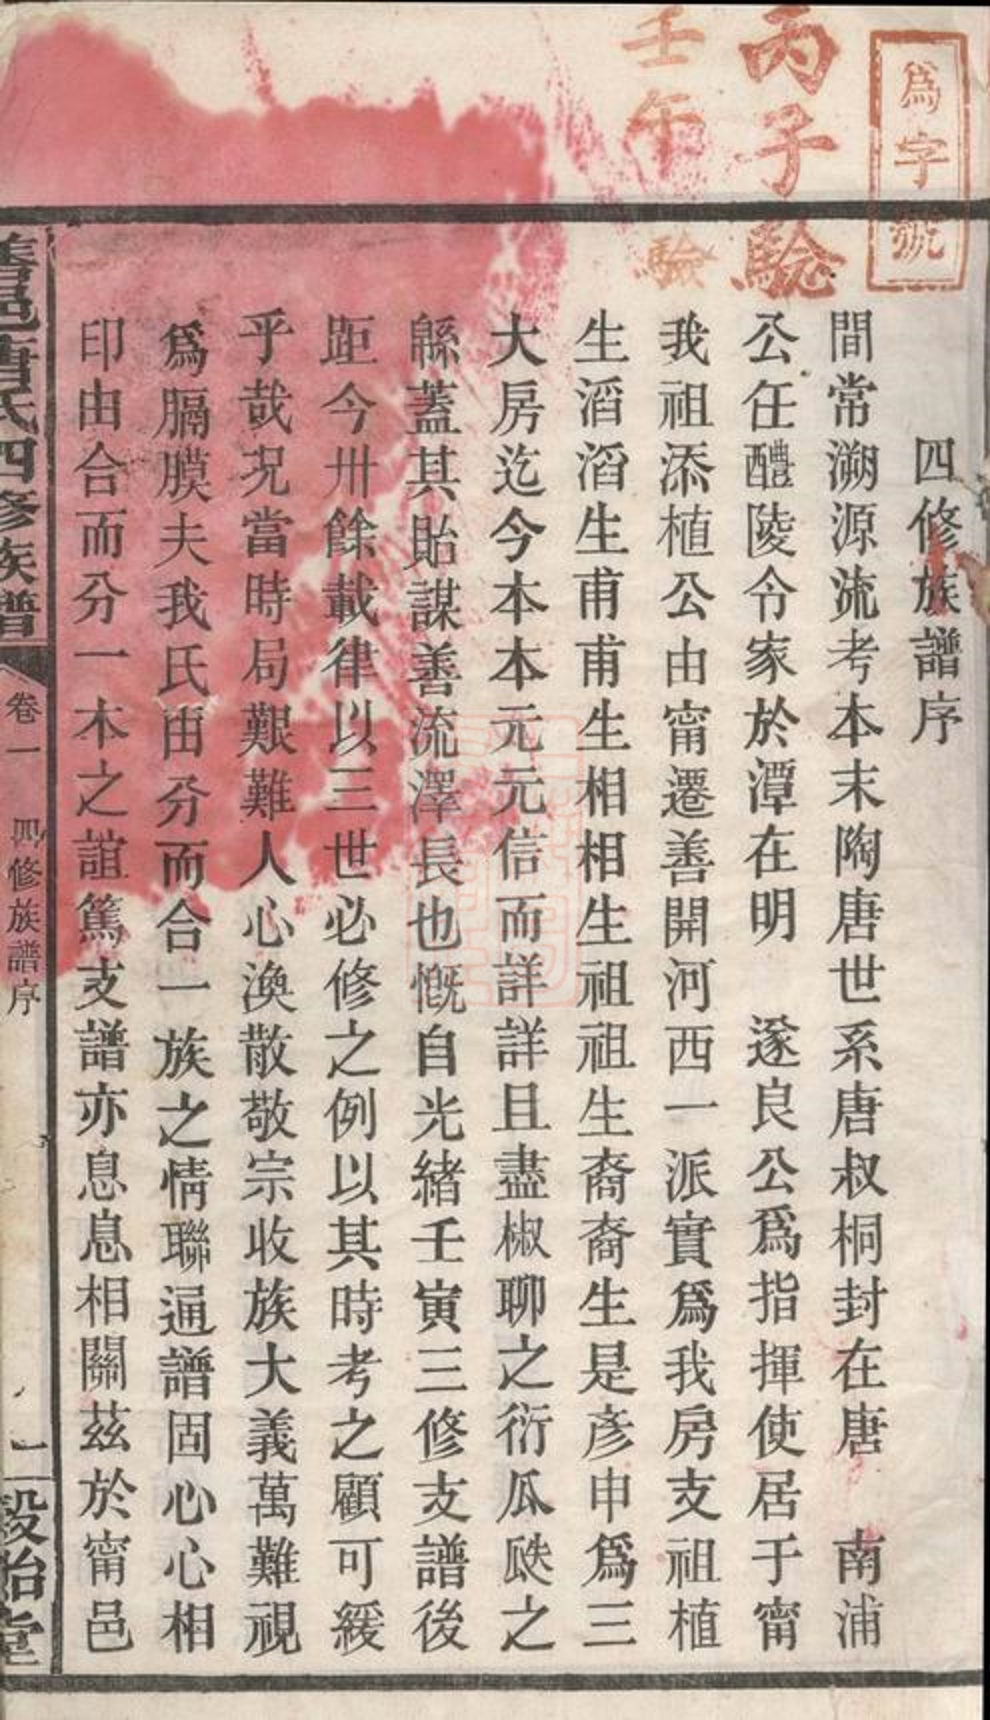 爲字號
丙子驗
壬午驗
四修族譜序
間常溯源流考本末陶唐世系唐叔桐封在唐　南浦
公任醴陵令家於潭在明　遂良公爲指揮使居于甯
我祖添植公由甯遷善開河西一派實爲我房支祖植
生滔滔生甫甫生相相生祖祖生裔裔生是彥申爲三
大房迄今本本元元信而詳詳且盡椒聊之衍瓜瓞之
緜蓋其貽謀善流澤長也慨自光緒壬寅三修支譜後
距今卅餘載律以三世必修之例以其時考之顧可緩
乎哉況當時局艱難人心渙散敬宗收族大義萬難視
爲膈膜夫我氏由分而合一族之情聯通譜固心心相
印由合而分一本之誼篤支譜亦息息相關茲於甯邑
善邑唐氏四修族譜
卷一　四修族譜序
一
穀詒堂